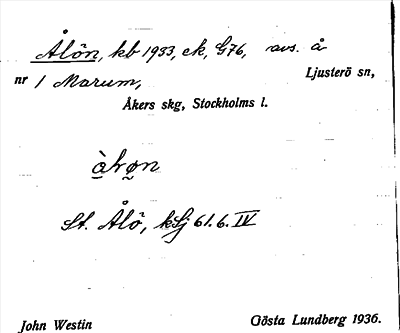 Ålön, kb 1933, ek, G76, avs. å
nr 1 Marum, Ljusterö sn,
Åkers skg, Stockholms l.
St. Ålö, kSj 61.6.IV
John Westin Gösta Lundberg 1936.